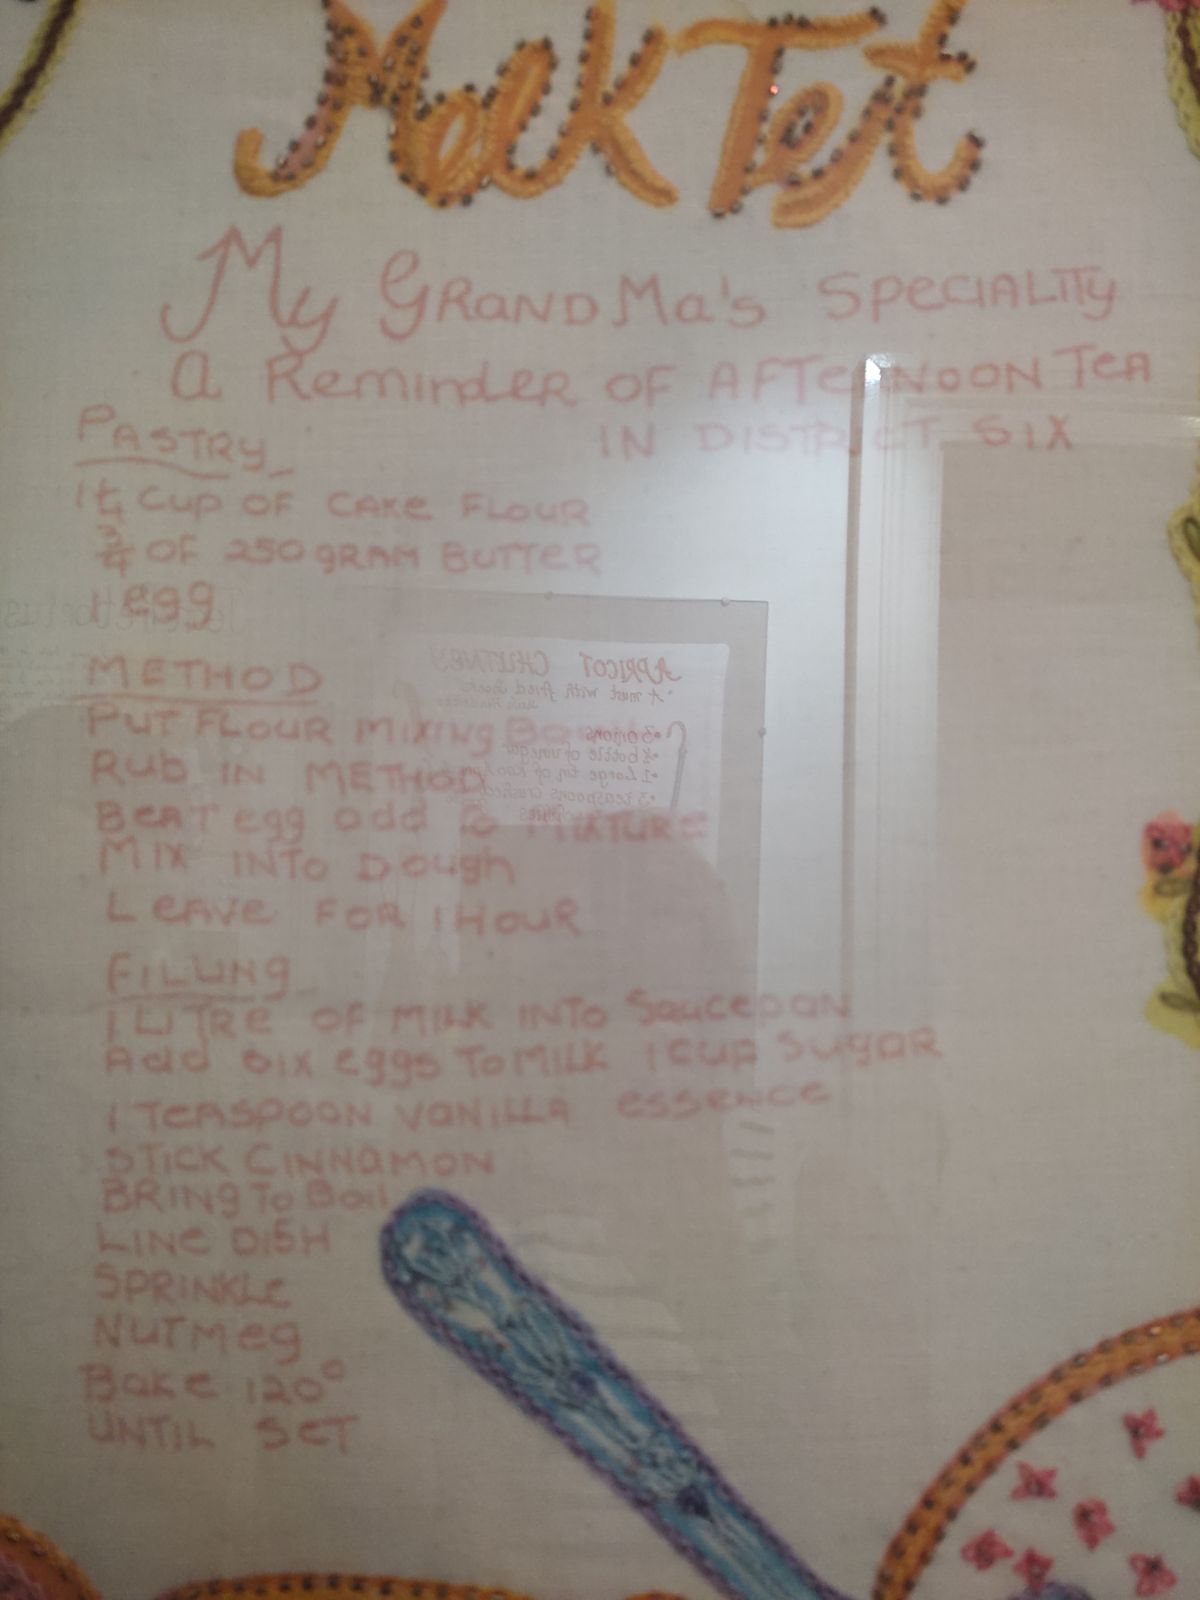 Melk Tert
My GRANDMa's SPeCIALITy
a Reminder OF AFTeRNOON TeA
IN DISTRICT SIX
PASTRY
1¼ CuP OF CAKe FLOUR
¾ OF 250 gRAM BUTTER
1 egg
METHOD
PUT FLOUR MIXINg BOWL
Rub IN METHOD
BEAT egg add to MIXTURE
MIX INTO DOugh
LeAVe FOR 1 HOUR
FILLINg
1 LITRe OF MILK INTO Saucepan
Add SIX eggs To MILK 1 CUP SugaR
1 TeASPOON VaNILLA essence
STICK CINNAMON
BRINg To Boil
LINe DISH
SPRINKLe
NUTMeg
Bake 120°
UNTIL SeT
APRICOT CHUTNEY
• 3 onions